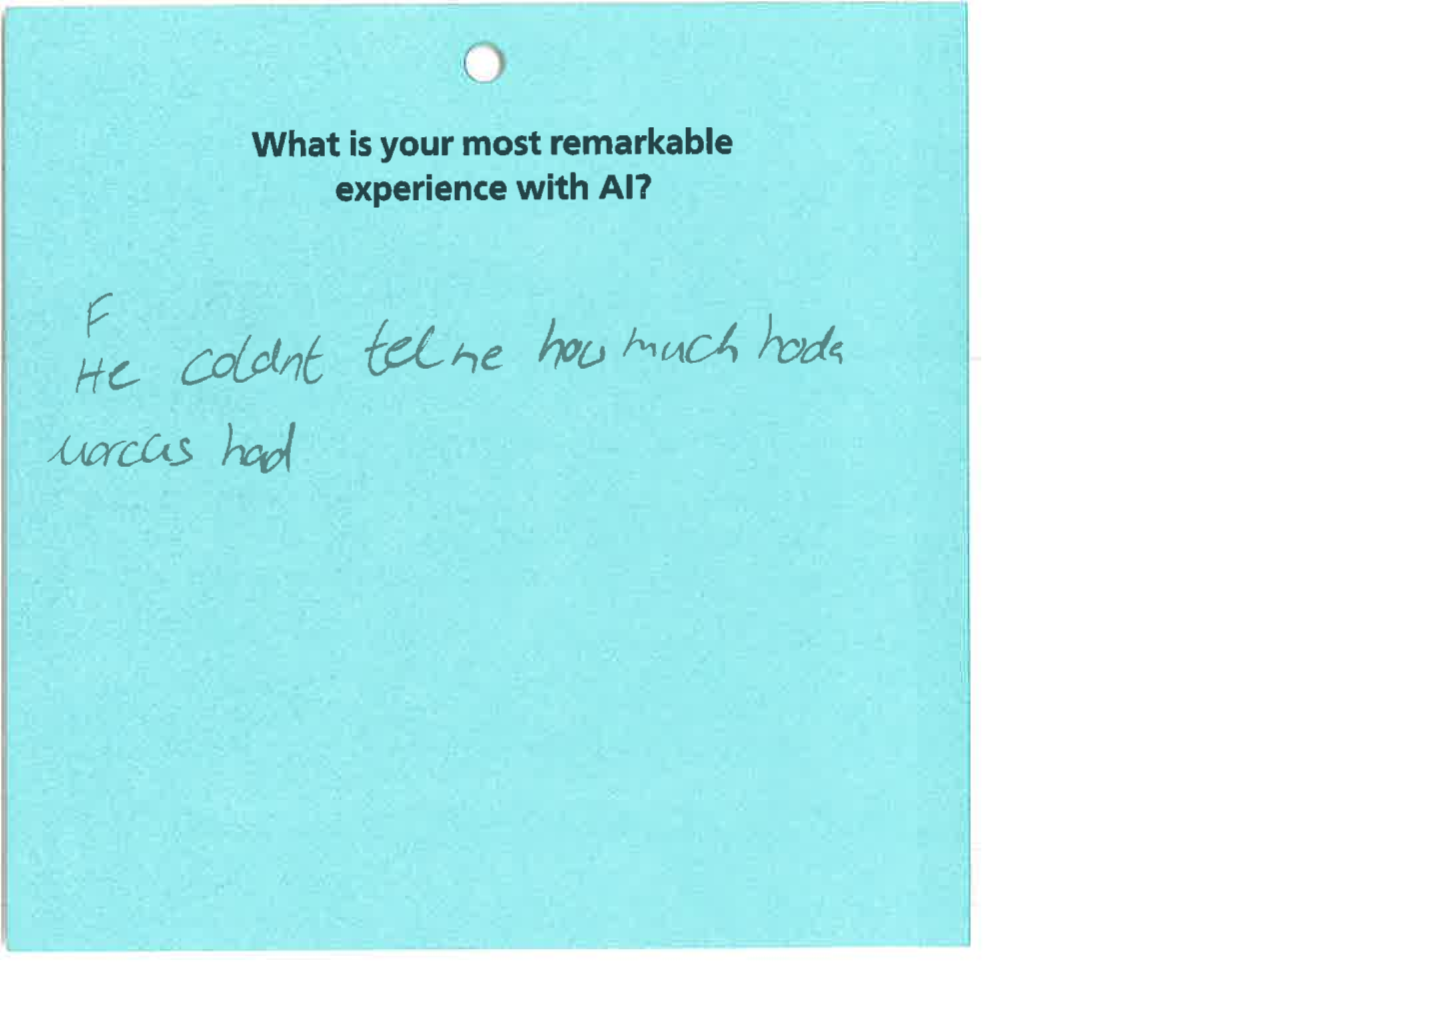 What is your most remarkable
experience with AI?
F
He coldnt tel me how much hoda
marcus had